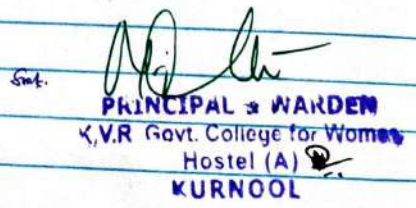 PRINCIPAL & WARDEN
K,V.R Govt. College for Women
Hostel (A)
KURNOOL